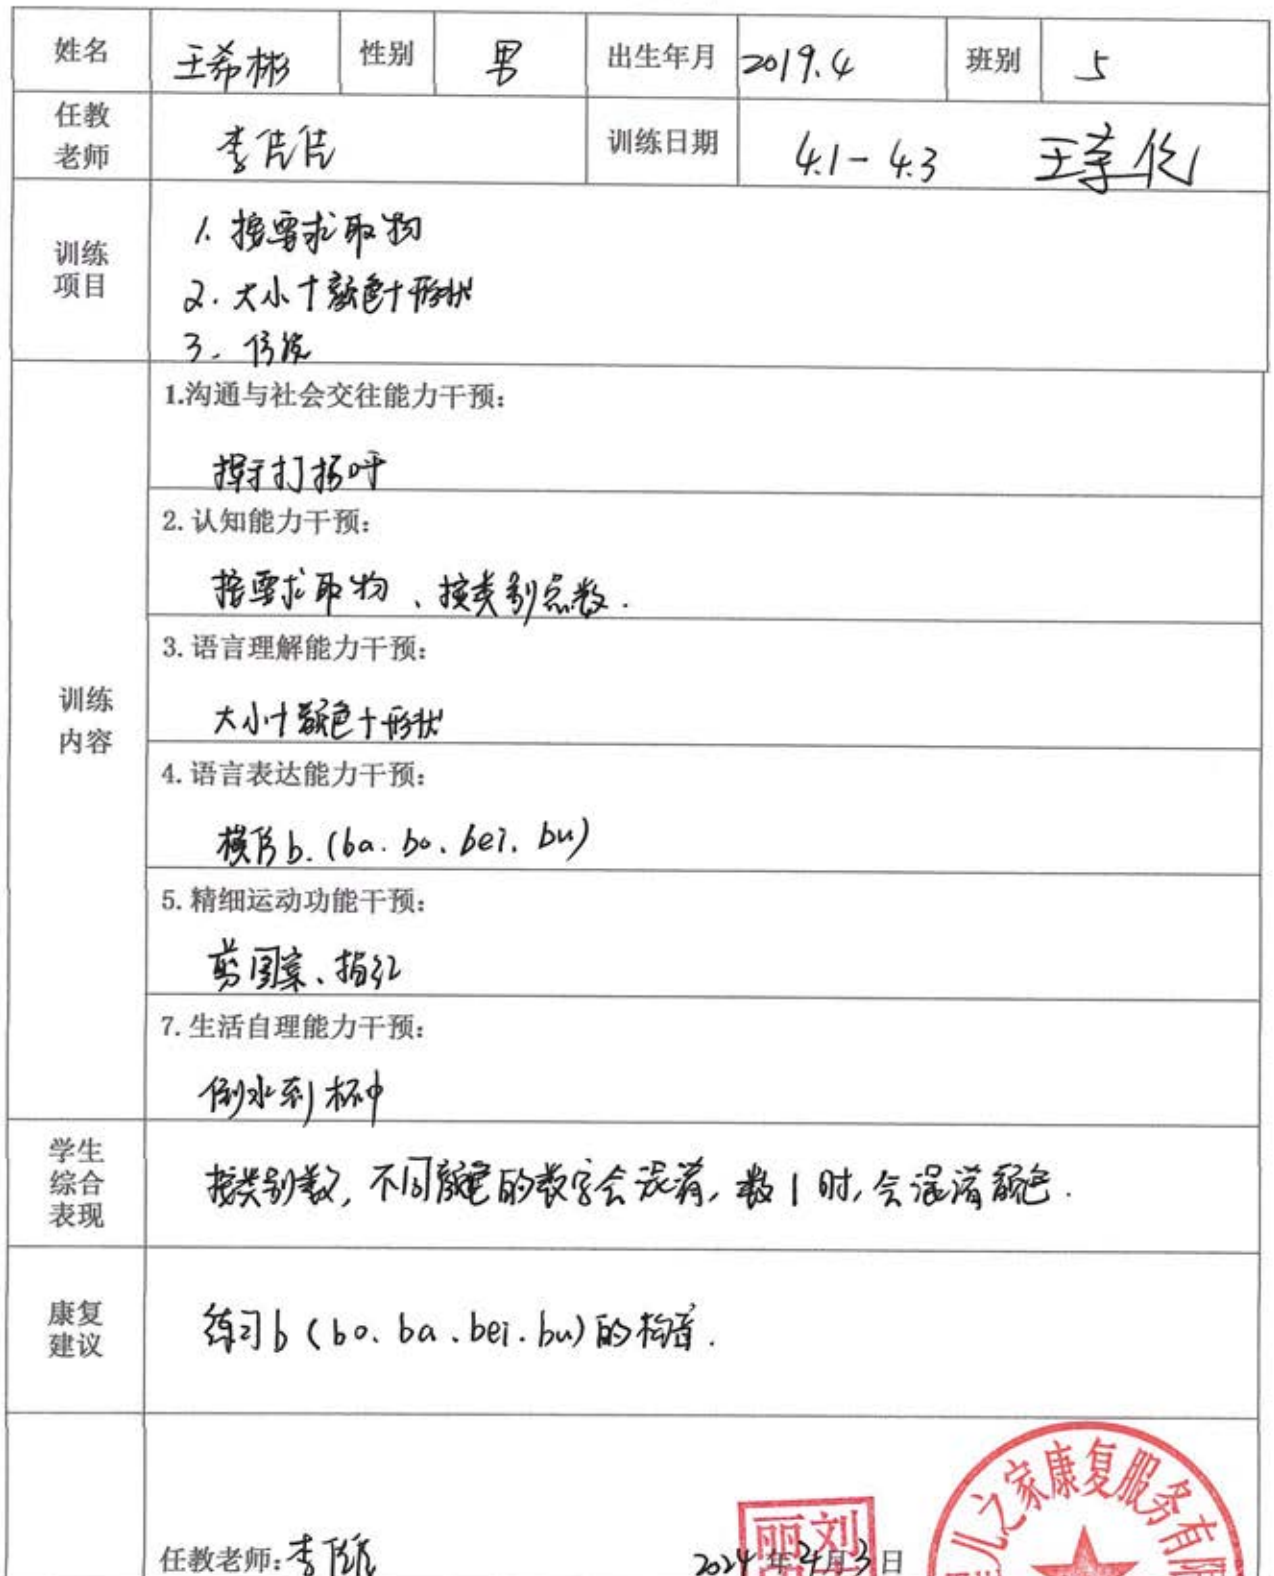 姓名 王希彬 性别 男 出生年月 2019.4 班别 5
任教老师 李佳佳 训练日期 4.1-4.3
训练项目
1. 按要求取物
2. 大小+颜色+形状
3.
训练内容
1.沟通与社会交往能力干预：
挥手打招呼
2.认知能力干预：
按要求取物、按类别点数.
3.语言理解能力干预：
大小+颜色+形状
4.语言表达能力干预：
模仿b.(ba.bo.bei.bu)
5.精细运动功能干预：
剪图案、描红
7.生活自理能力干预：
倒水到杯中
学生综合表现
按类别数，不同颜色的数字会混淆，数1时，会混淆颜色.
康复建议
练习b(bo、ba、bei.bu)的构音.
任教老师：李佳佳 2024年4月3日
儿之家康复服务有限
刘
丽